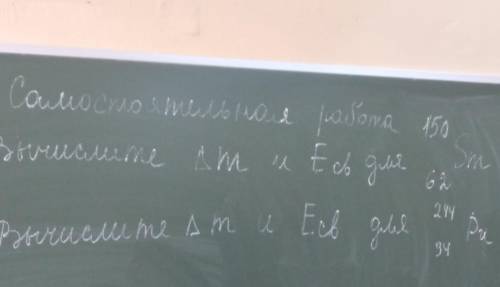 Самостоятельная работа
Вычислите Δm и Eсв для ¹⁵⁰₆₂Sm
Вычислите Δm и Eсв для ²⁴⁴₉₄Pu